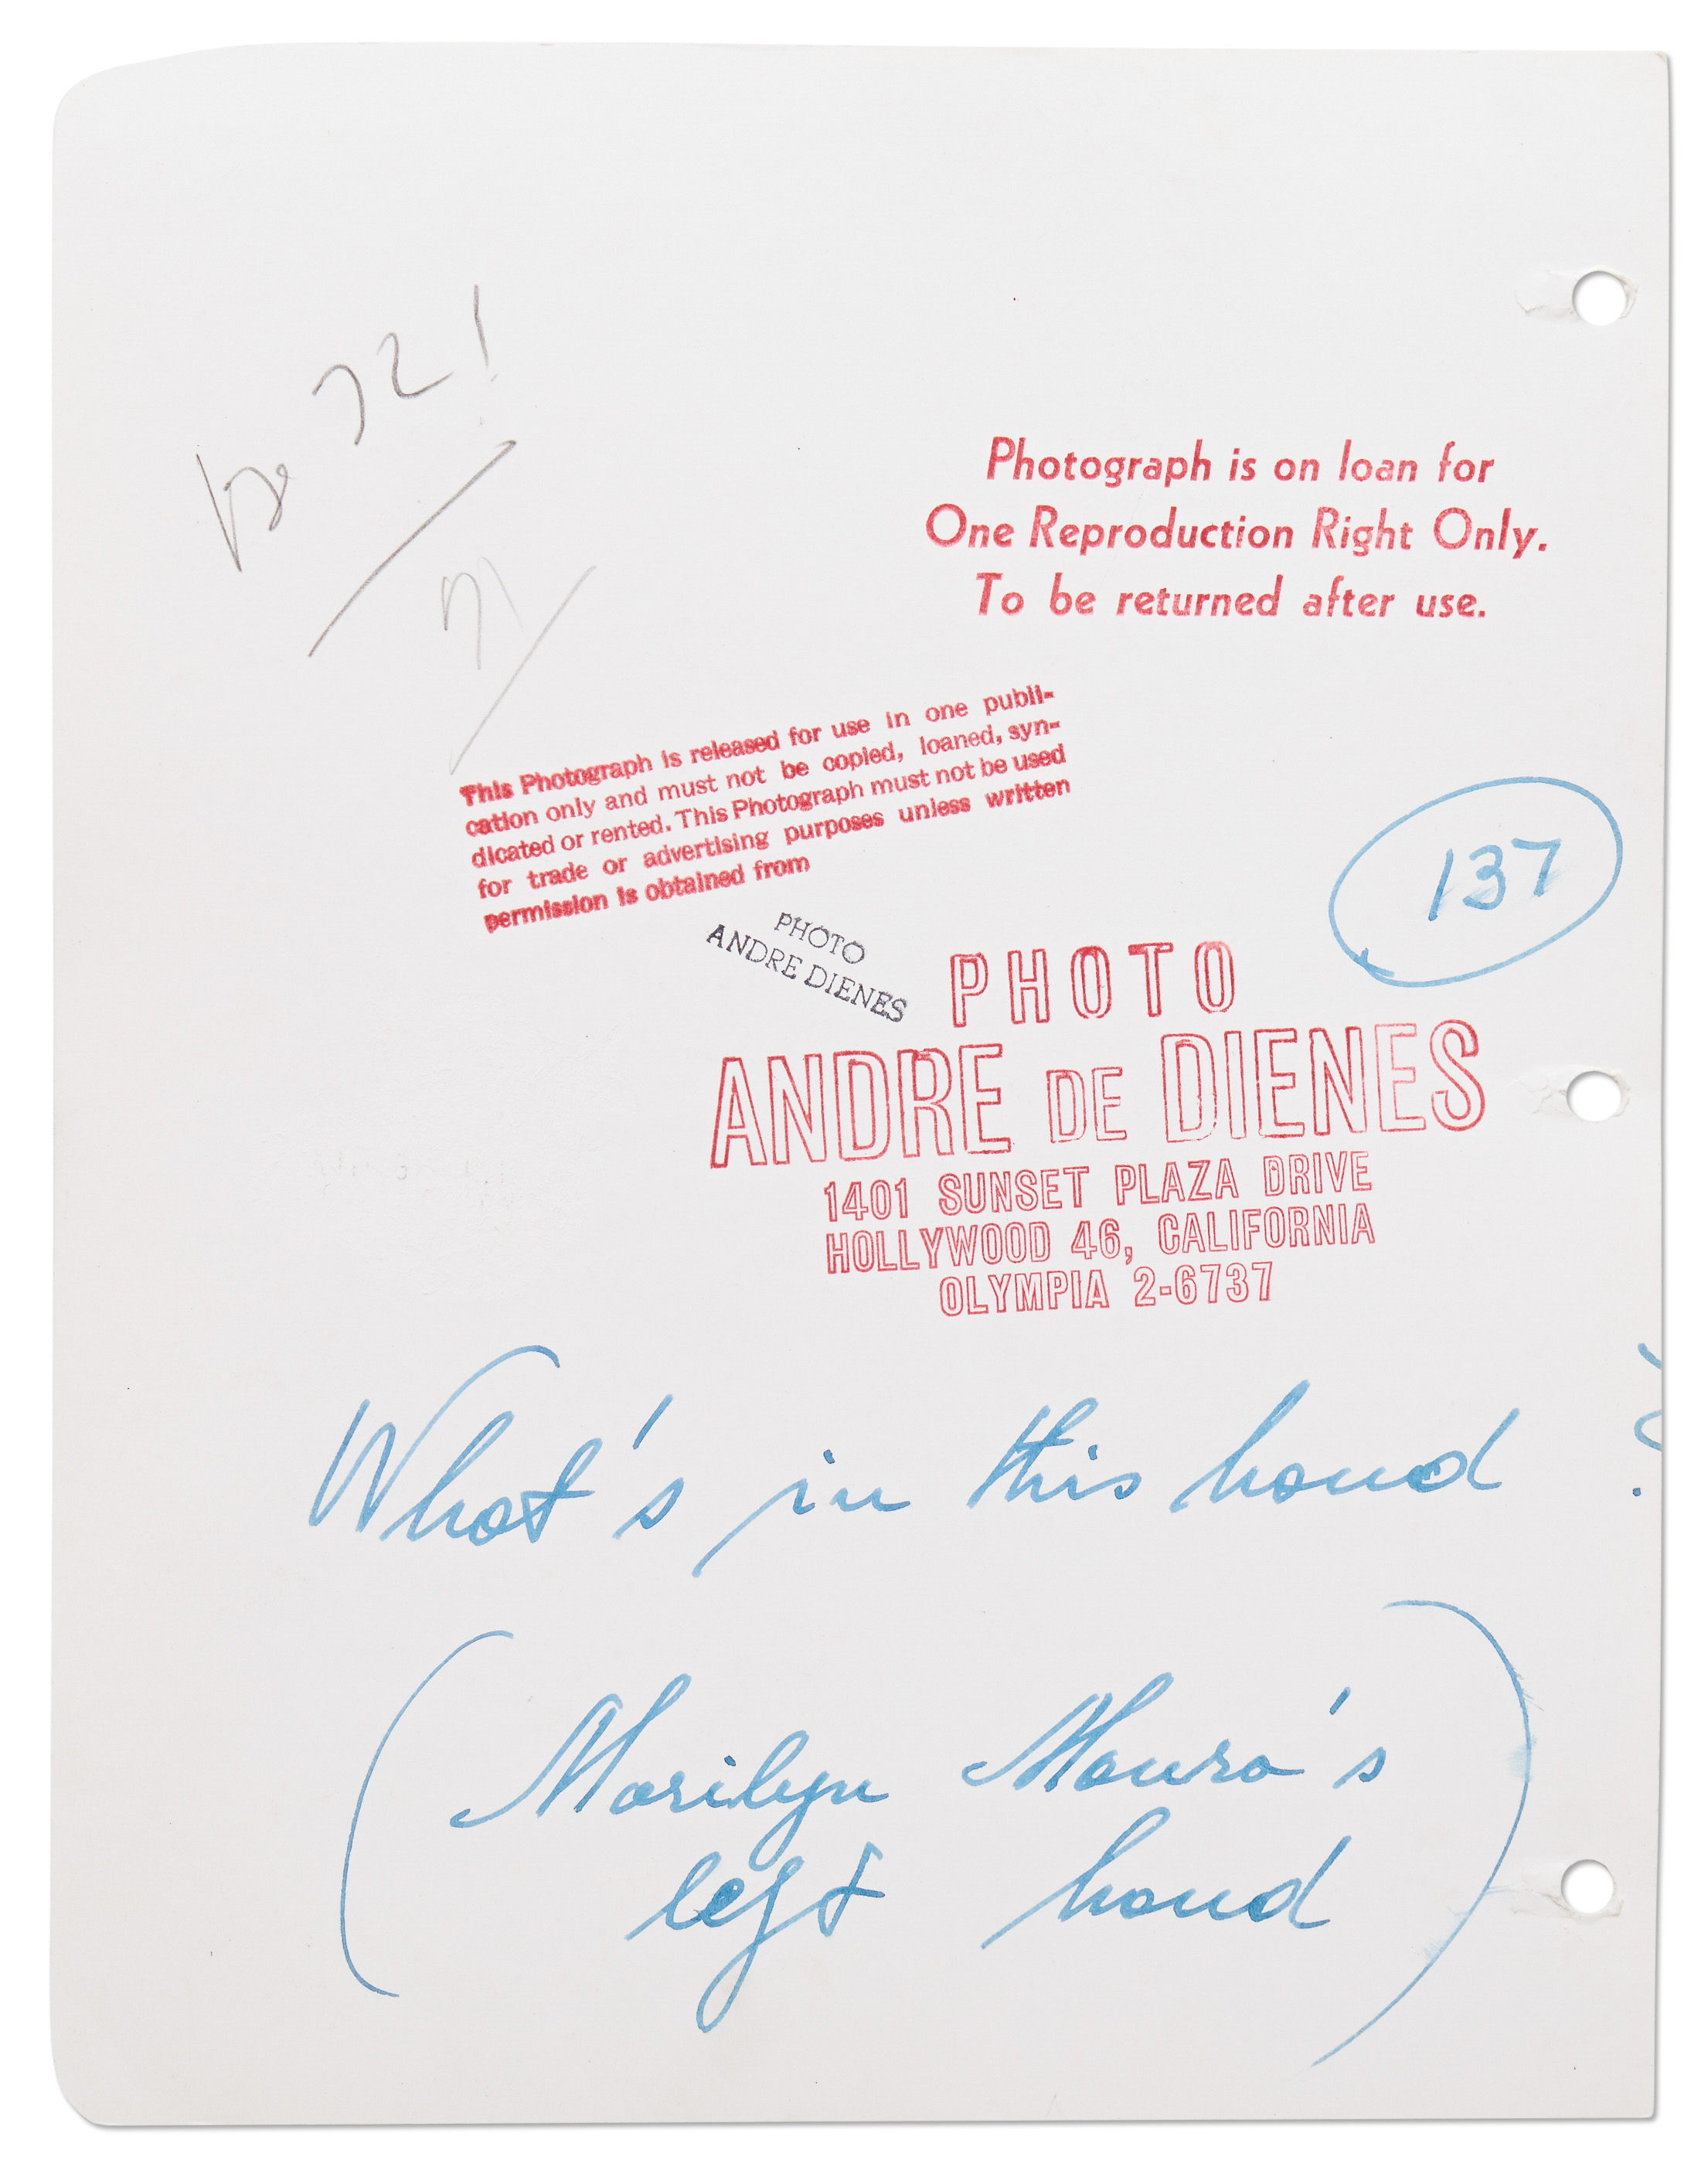 72!
71
Photograph is on loan for
One Reproduction Right Only.
To be returned after use.
This Photograph is released for use in one publi-
cation only and must not be copied, loaned, syn-
dicated or rented. This Photograph must not be used
for trade or advertising purposes unless written
permission is obtained from
PHOTO
ANDRE DIENES
137
PHOTO
ANDRE DE DIENES
1401 SUNSET PLAZA DRIVE
HOLLYWOOD 46, CALIFORNIA
OLYMPIA 2-6737
What's in this hand ?
(Marilyn Monro's
left hand)